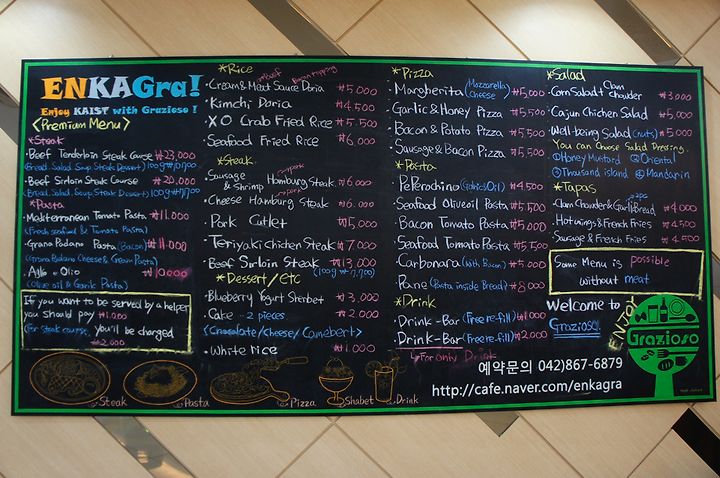 ENKAGra!
Enjoy KAIST with Grazioso!
<Premium Menu>
*Steak
·Beef Tenderloin Steak Course ₩23,000
(Bread, Salad, Soup, Steak, Dessert) 100g ₩11,000
·Beef Sirloin Steak Course ₩20,000
(Bread, Salad, Soup, Steak, Dessert) 100g ₩7,700
*Pasta
·Mediterranean Tomato Pasta ₩11,000
(Fresh seafood & Tomato Pasta)
·Grana Padano Pasta (Bacon) ₩11,000
(Grana Padano Cheese & Cream Pasta)
·Aglio e Olio ₩10,000
(Olive oil & Garlic Pasta)
If you want to be served by a helper
you should pay ₩1,000
(For steak course, you'll be charged
₩2,000
*Rice
·Cream & Meat Sauce Doria ₩5,000
·Kimchi Doria ₩4,500
·XO Crab Fried Rice ₩5,500
·Seafood Fried Rice ₩6,000
*Steak
·Sausage
& Shrimp Hamburg Steak ₩6,000
·Cheese Hamburg Steak ₩6,000
·Pork Cutlet ₩5,000
·Teriyaki chicken Steak ₩7,000
·Beef Sirloin Steak ₩13,000
(100g ₩7,700)
*Dessert/etc
·Blueberry Yogurt Sherbet ₩3,000
·Cake - 2 pieces ₩2,000
<Chocolate/Cheese/Camebert>
·White rice ₩1,000
*Pizza
·Margherita (Mozzarella Cheese) ₩5,000
·Garlic & Honey Pizza ₩5,500
·Bacon & Potato Pizza ₩5,500
·Sausage & Bacon Pizza ₩5,500
*Pasta
·Peperochino (garlic & Oil) ₩4,500
·Seafood Olive oil Pasta ₩5,500
·Bacon Tomato Pasta ₩5,500
·Seafood Tomato Pasta ₩5,500
·Carbonara (with Bacon) ₩5,000
·Pane (Pasta inside Bread) ₩8,000
*Drink
·Drink-Bar (Free re-fill) ₩1,000
·Drink-Bar (Free re-fill) ₩2,000
↳For Only Drink
*Salad
·Corn Salad + Clam chowder ₩3,000
·Cajun Chicken Salad ₩5,000
·Well-being Salad (nuts) ₩5,000
You can Choose Salad Dressing.
①Honey Mustard ②Oriental
③Thousand island ④Mandarin
*Tapas
·Clam Chowder & Garlic Bread ₩4,000
·Hot wings & French Fries ₩4,500
·Sausage & French Fries ₩4,500
Some Menu is possible
without meat
Welcome to
Grazioso!
ENJOY
Grazioso
예약문의 042)867-6879
http://cafe.naver.com/enkagra
Steak
Pasta
Pizza
Shabet
Drink